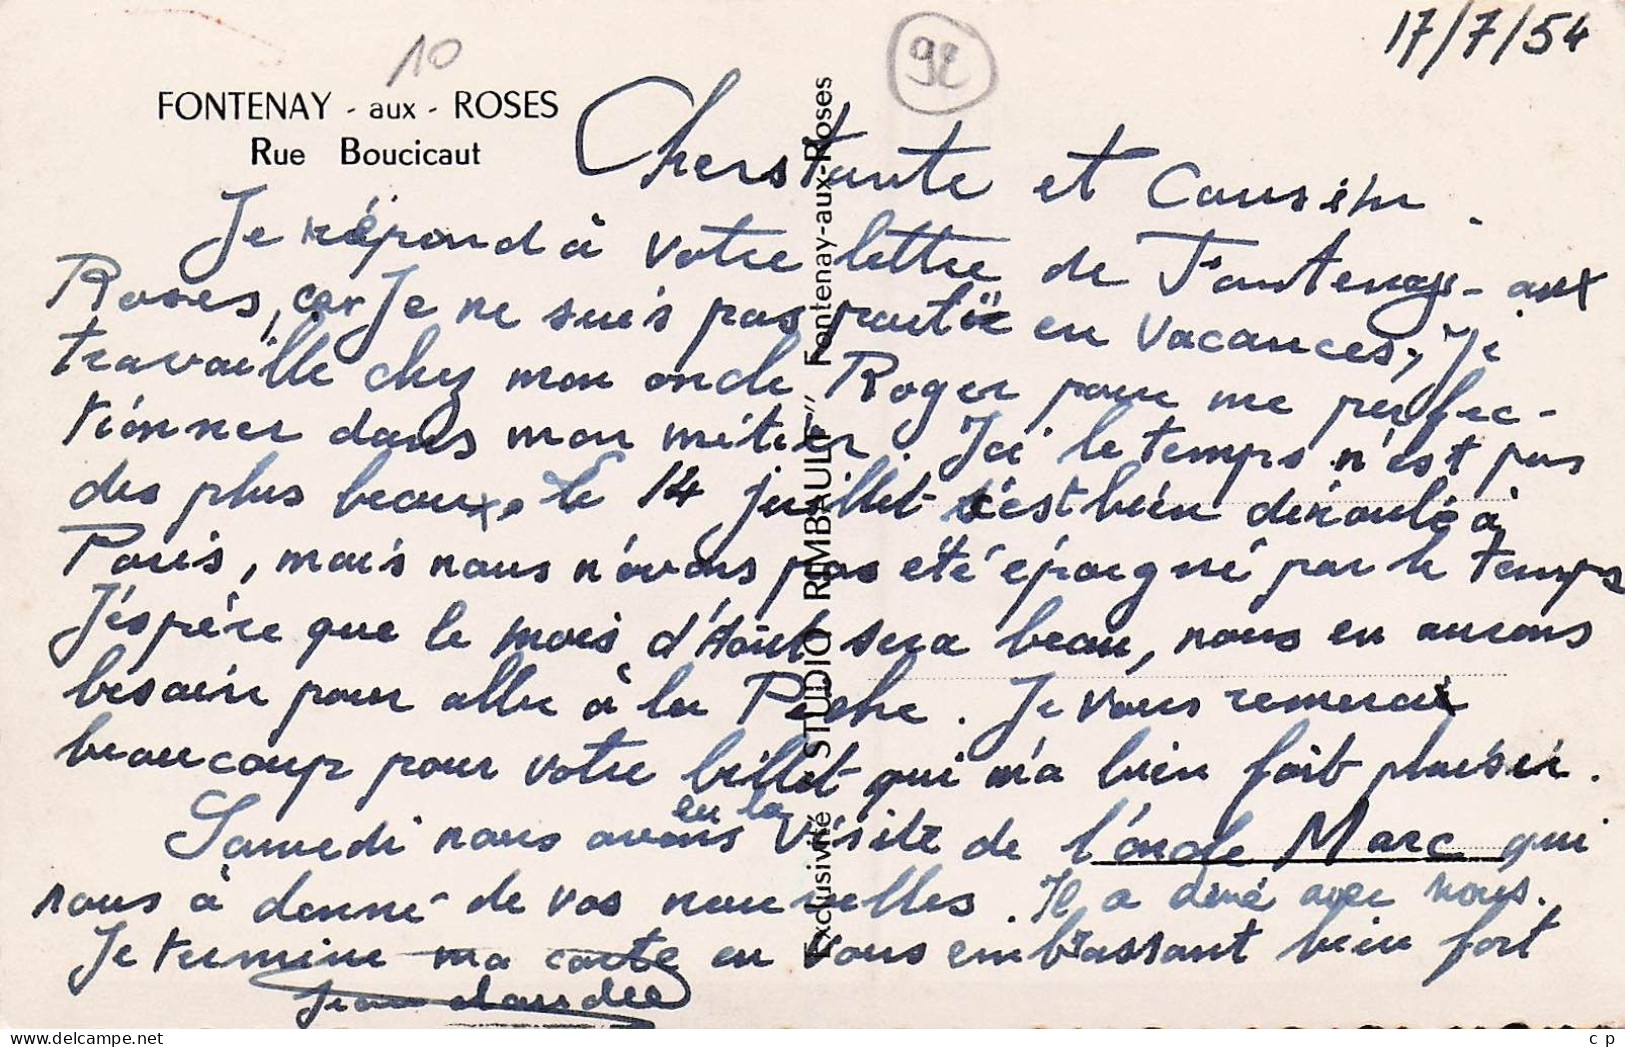 17/7/54
10
92
FONTENAY - aux - ROSES
Rue Boucicaut
Chers tante et Cousin.
Je répond à votre lettre de Fontenay-aux
Roses, car Je ne suis pas partie en vacances, Je
travaille chez mon oncle Roger pour me perfec-
tionner dans mon métier. Ici le temps n'est pas
des plus beaux, le 14 juillet s'est bien déroulé à
Paris, mais nous n'avons pas été épargné par le temps
J'éspère que le mois d'Août sera beau, nous en aurons
besoin pour aller à la Pêche. Je vous remercie
beaucoup pour votre billet qui m'a bien fait plaisir.
Samedi nous avons eu la visite de l'oncle Marc qui
nous à donné de vos nouvelles. Il a diné avec nous.
Je termine ma carte en vous embrassant bien fort
Jean claude
Exclusivité "STUDIO RIMBAULT" Fontenay-aux-Roses
c p